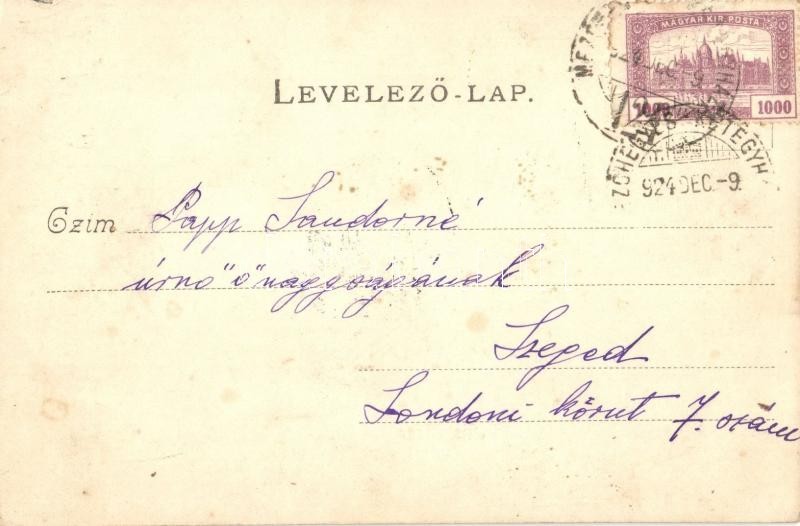 MAGYAR KIR. POSTA
1000 1000
924 DEC -9
LEVELEZŐ-LAP.
924 DEC. -9.
Czim Papp Sandorné
úrnő őnagyságának
Szeged
Londoni körut 7. szám